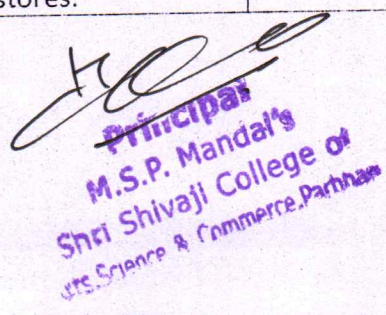 stores.
Principal
M.S.P. Mandal's
Shri Shivaji College of
Arts,Science & Commerce,Parbhani